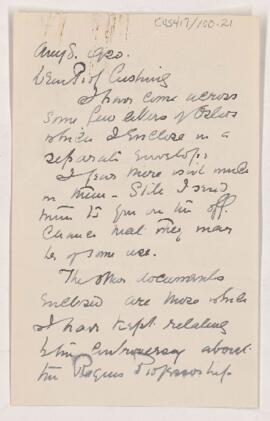 CUS417/120.21
Aug 8. 1920.
Dear Prof Cushing
I have come across
some few letters of Osler
which I enclose in a
separate envelope.
I fear there isn't much
in them – Still I send
them to you on the off
chance that they may
be of some use.
The other documents
enclosed are those which
I have kept relating
to the controversy about
the Regius Professorship.